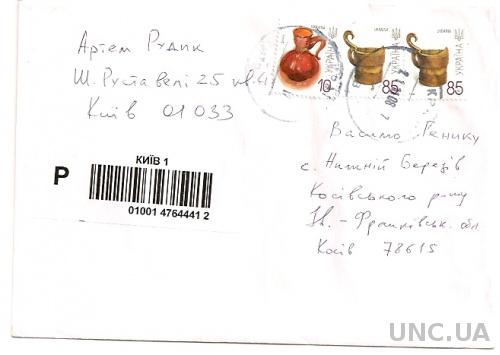 Артем Рудик
Ш. Руставелі 25 кв. 41
Київ 01033
УКРАЇНА
10
УКРАЇНА
85
УКРАЇНА
85
Р
КИЇВ 1
01001 4764441 2
Василю Генику
с. Нижній Березів
Косівського р-ну
Ів. - Франківськ. обл
Косів 78615
UNC.UA